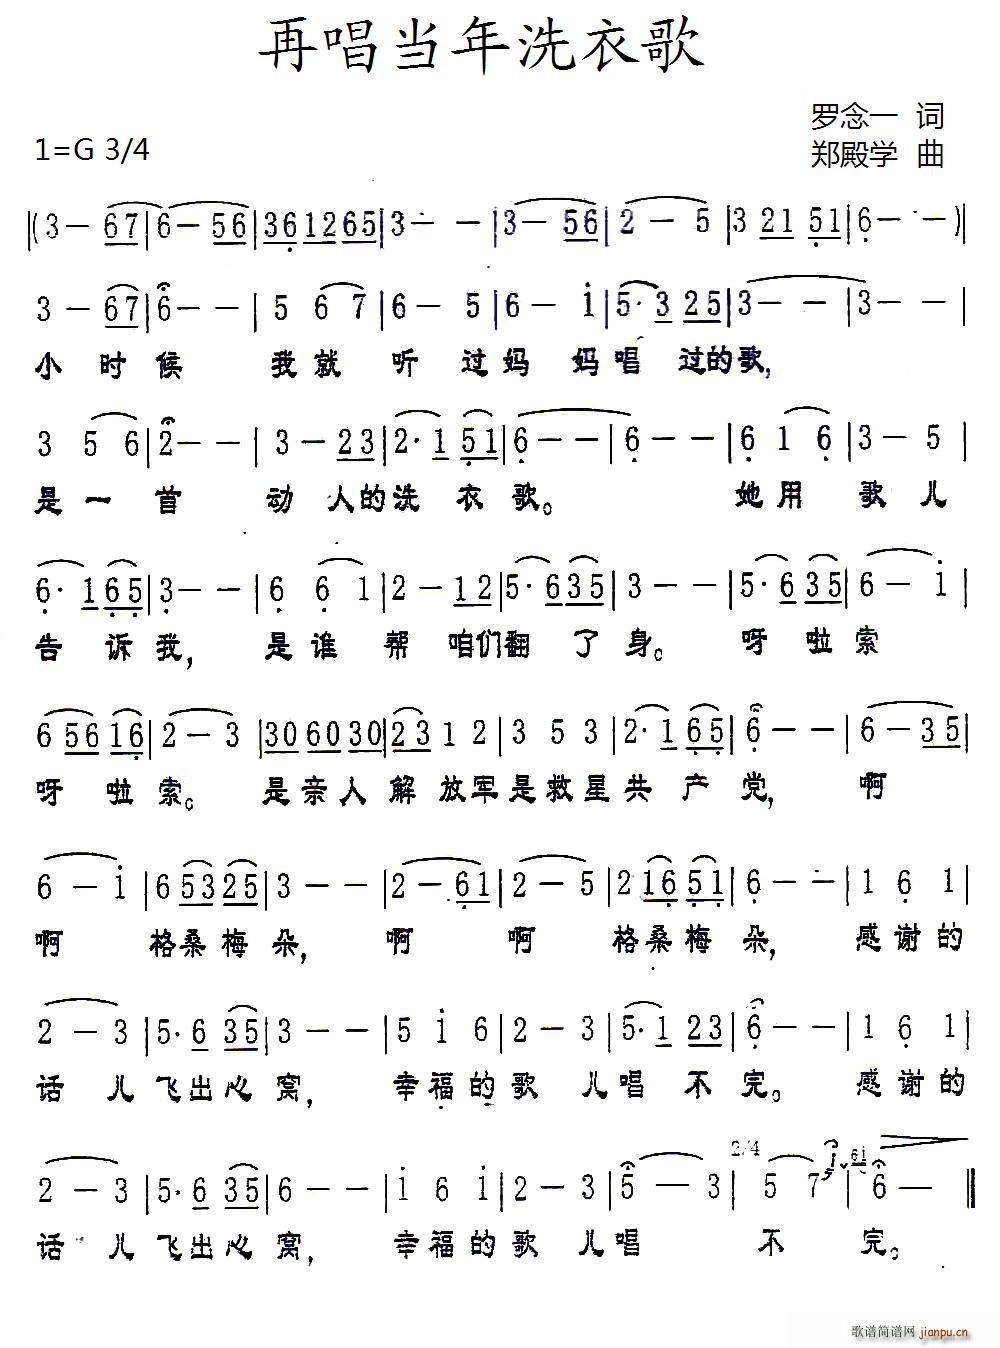 再唱当年洗衣歌
罗念一 词
1=G 3/4
郑殿学 曲
|(3— 67|6— 56|361265|3— —|3— 56|2— 5|3 21 51|6— —)|
3 — 67|6— —|5 6 7|6— 5|6— i|5· 3 25|3— —|3— —|
小 时 候 我 就 听 过 妈 妈 唱 过 的 歌,
3 5 6|2— —|3— 23|2· 1 51|6— —|6— —|6 1 6|3— 5|
是 一 首 动 人 的 洗 衣 歌。 她 用 歌 儿
6· 165|3— —|6 6 1|2— 12|5· 635|3— —|5· 635|6— i|
告 诉 我, 是 谁 帮 咱们 翻 了 身。 呀 啦 索
6 56 16|2— 3|30 60 30|23 1 2|3 5 3|2· 165|6— —|6— 35|
呀 啦 索。 是 亲 人 解 放 军 是 救 星 共 产 党, 啊
6 — i|6 53 25|3— —|2— 61|2— 5|2 16 51|6— —|1 6 1|
啊 格 桑 梅 朵, 啊 啊 格 桑 梅 朵, 感 谢 的
2 — 3|5· 6 35|3— —|5 i 6|2— 3|5· 1 23|6— —|1 6 1|
话 儿 飞 出 心 窝, 幸 福 的 歌 儿 唱 不 完。 感 谢 的
2/4 6i
2 — 3|5· 6 35|6— —|i 6 i|2— 3|5— 3|5 7|6—‖
话 儿 飞 出 心 窝, 幸 福 的 歌 儿 唱 不 完。
歌谱简谱网 jianpu.cn